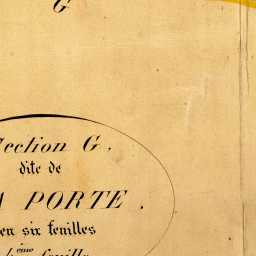 G
Section G.
dite de
A PORTE.
en six feuilles
feuille